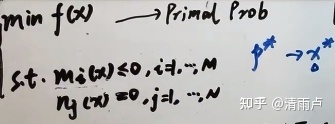 min f(x) → Primal Prob
s.t. mᵢ(x) ≤ 0, i=1, ⋯, M
nⱼ(x) = 0, j=1, ⋯, N
p* → x*
知乎 @清雨卢